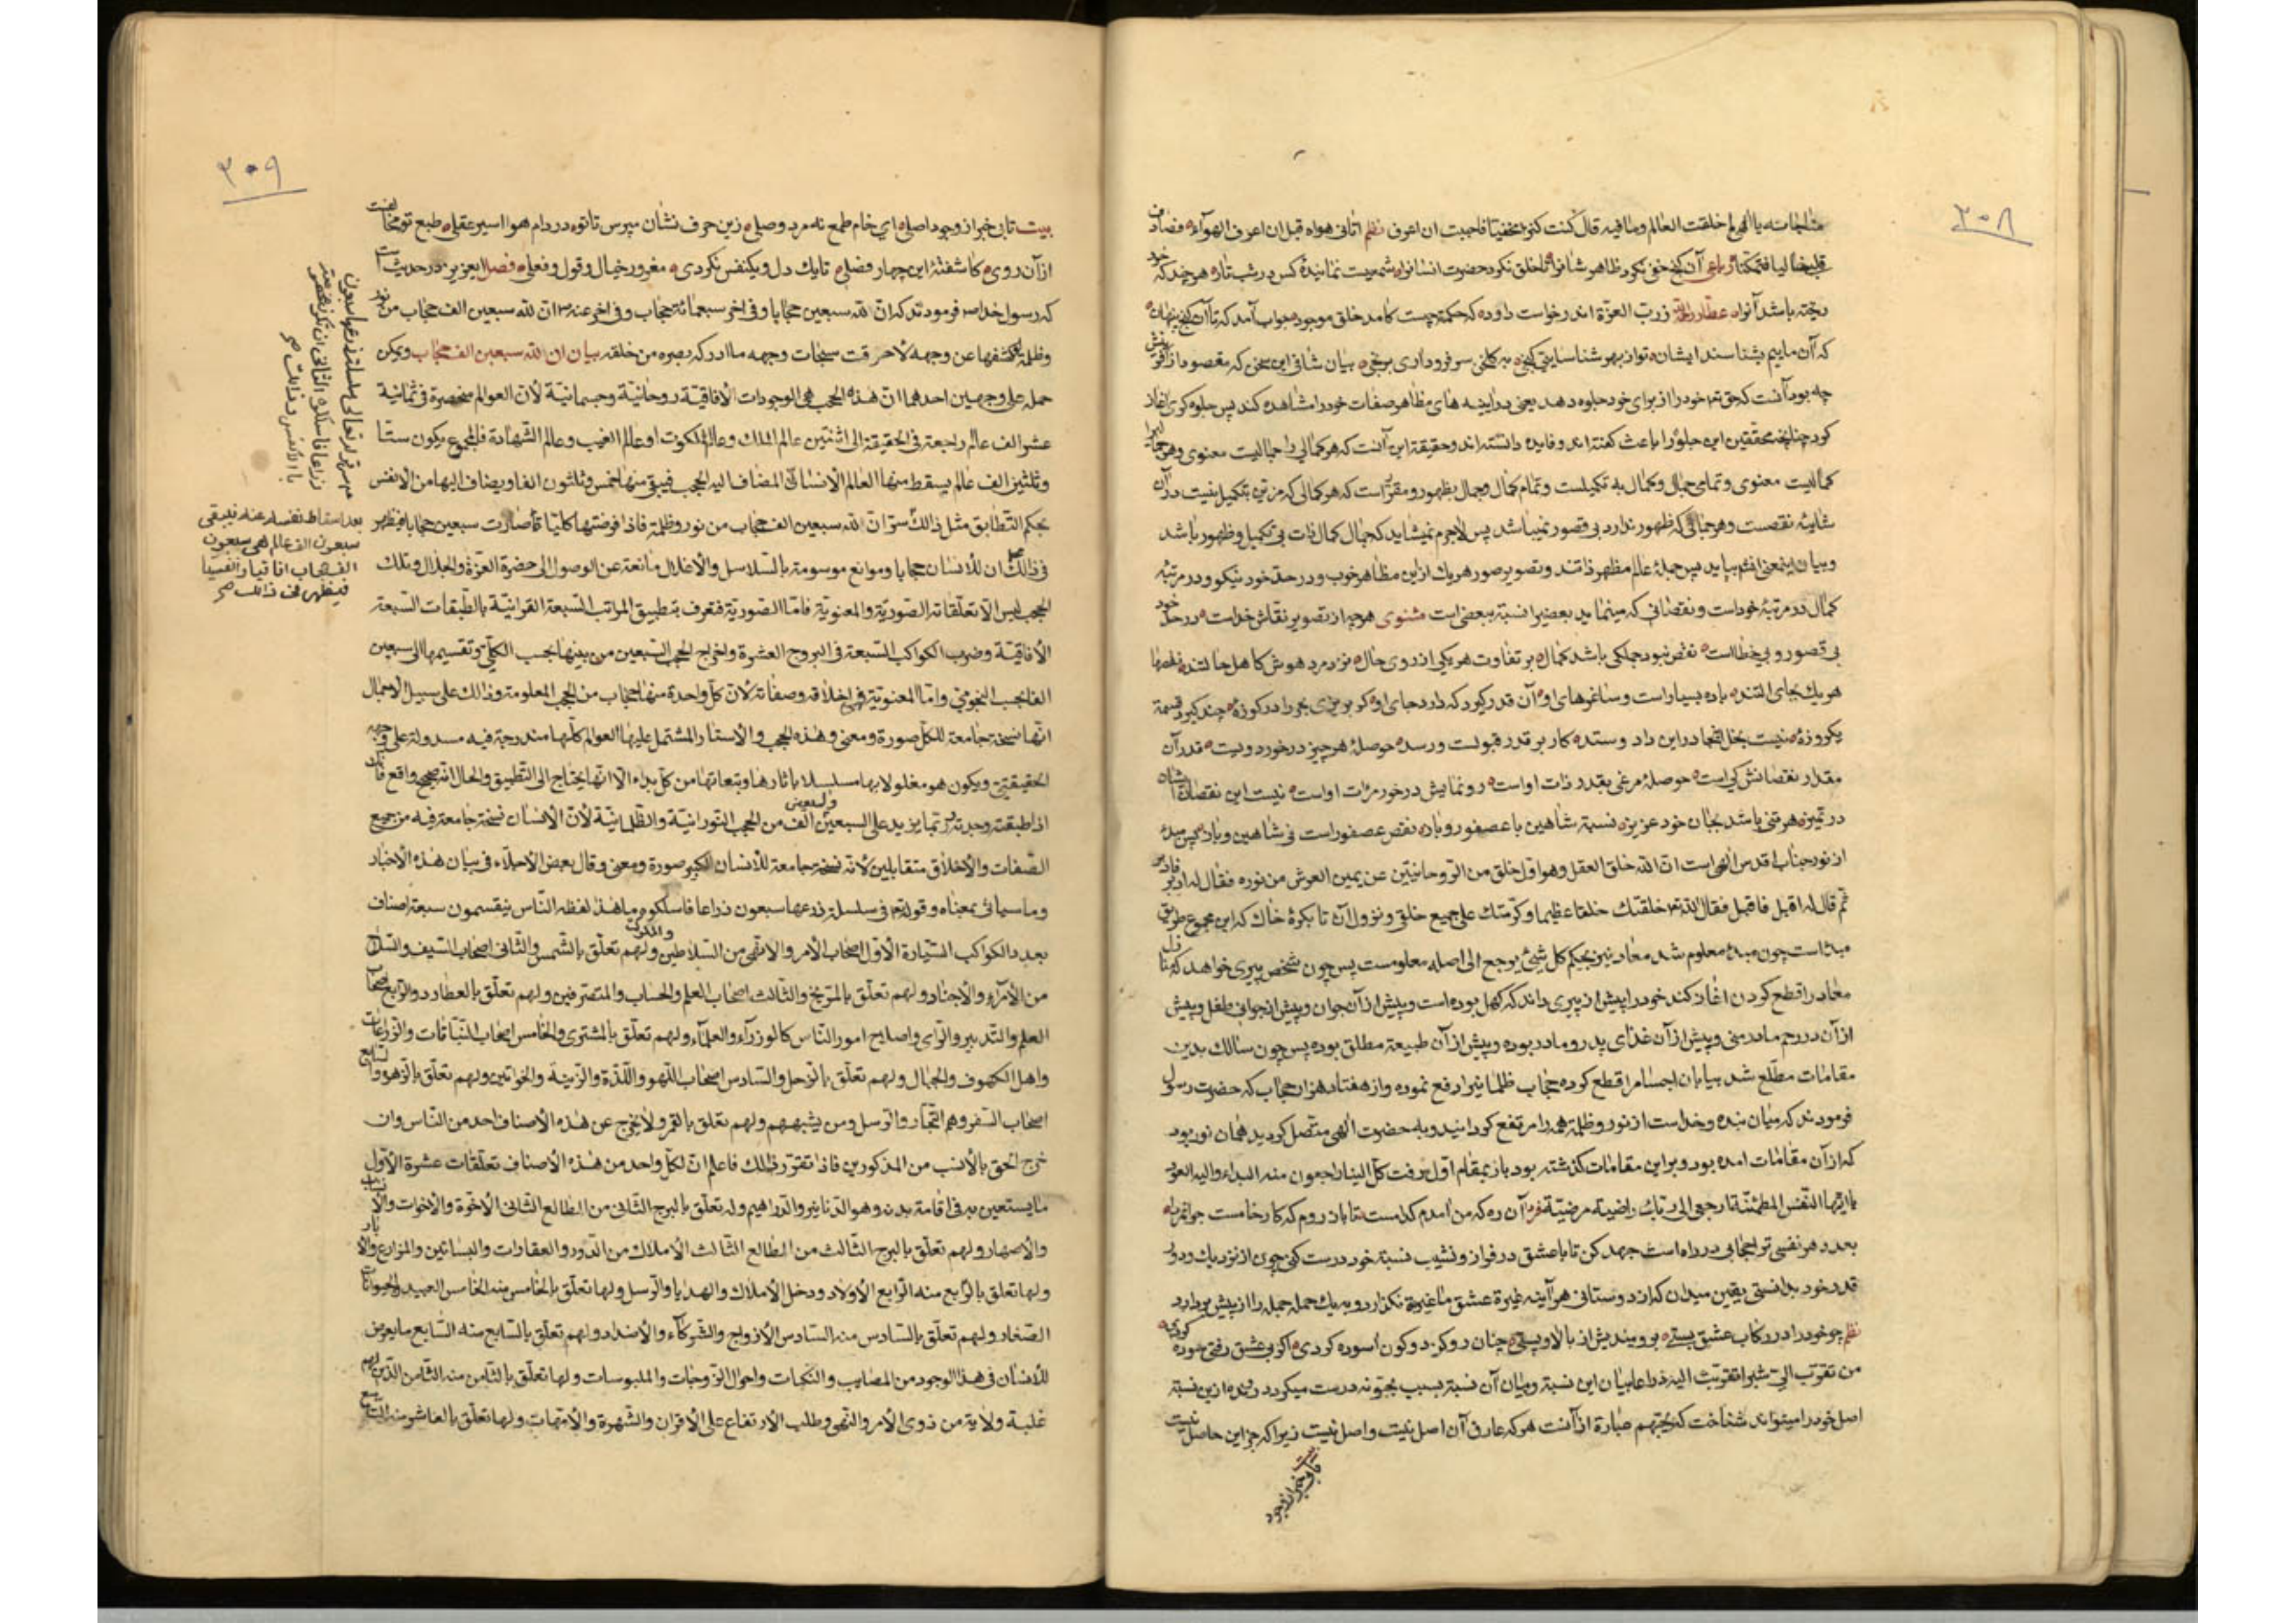 ۳۰۸
مناجاته يا الهى لم خلقت العالم وما فيه قال كنت كنزا مخفيا فاحببت ان اعرف نظم اتانى هواه قبل ان اعرف الهوآء فصادف
قلبا خاليا فتمكنا رباعى آن كنج خفى نكرد ظاهر شانرا تا خلق نكرد حضرت انسانرا شميست نمايندهٔ كس در شب تار هر چند كه خود
ريخته باشد آنرا عطار ز رب العزة اندر خواست داود كه حكمت چيست كامد خلق موجود جواب آمد كه تا آن كنج پنهان
كه آن ماييم بشناسند ايشان تو از بهر شناسايى كنجى به كلخنى سر فرود آرى برنجى بيان شافى اين سخن كه مقصود از آفرينش
چه بود آنست كه حق تع خود را از براى خود جلوه دهد يعنى در اينه هاى مظاهر صفات خود را مشاهده كند پس جلوه كرى اغاز
كرد چنانچه محققين اين جلوه را باعث كفته اند و فايده دانسته اند و حقيقت اين آنست كه هر كمالى را جماليست معنوى وهر جمال را
كماليست معنوى و تمامى جمال وكمال به تكميلست و تمام كمال و جمال بظهور و مقرر است كه هر كمالى كه مرتبهٔ تكميل نيست در آن
شايبهٔ نقصست و هر جمالى كه ظهور ندارد بى قصور نميباشد پس لاجرم نميشايد كه جمال كمال ذات بى تكميل و ظهور باشد
كمال در مرتبهٔ خود است و نقصانى كه مينمايد بعضى را نسبة ببعضى است مثنوى هر چه از تصوير نقاش خداست در حد خود
بى قصور و بى خطا است نقص نبود جملكى باشد كمال بر تفاوت هر يكى از روى حال نزد مرد هوش كامل
هر يك بجاى التند باده بسيار است و ساغرهاى او آن قدر كيرد كه دارد جاى او كر بريزى بحر را در كوزهٔ چند كيرد قسمة
يكروزهٔ نيست بخل انجا در اين داد و ستد كار بر قدر قبولست و رسد حوصلهٔ هر چيز در خورد ويست قدر آن
مقدار نقصانش كى است حوصلهٔ مرغى بقدر ذات او است رو نمايش در خور مرات او است نيست اين نقصان
در تميز هر تنى باشد بجان خود عزيز نسبة شاهين با عصفور و باز نقص عصفور است فى شاهين و باز پس مبدء
از نور جناب اقدس الهى است ان الله خلق العقل وهو اول خلق من الروحانيين عن يمين العرش من نوره فقال له ادبر فادبر
ثم قال له اقبل فاقبل فقال الله تع خلقتك خلقا عظيما وكرمتك على جميع خلقى و نزول آن تا بكرهٔ خاك كه اين مجموع طريق
مبداست چون مبدء معلوم شد معاد نيز بحكم كل شئ يرجع الى اصله معلومست پس چون شخص پيرى خواهد كه
معاد را قطع كردن اغاز كند خود را پيش از پيرى داند كه كهل بوده است و پيش از آن جوان و پيش از جوانى طفل و پيش
از آن در رحم مادر منى و پيش از آن غذاى پدر و مادر بوده و پيش از آن طبيعة مطلق بوده پس چون سالك بدين
مقامات مطلع شد بيابان اجسام را قطع كرده حجاب ظلمانيرا رفع نموده و از هفتاد هزار حجاب كه حضرت رسول
فرمودند كه ميان بنده و خداست از نور و ظلمة همه را مرتفع كردانيد و به حضرت الهى متصل كرديد همان نور بود
كه از آن مقامات امده بود و بر اين مقامات كذشته بود باز بمقام اول رفت كل الينا راجعون منه البدء واليه العود
يا ايتها النفس المطمئنة ارجعى الى ربك راضية مرضية فرد آن ره كه من آمدم كدامست تا باز روم كه كار خامست جوانمردا
بعدد هر نفسى ترا حجابى در راه است جهد كن تا با عشق در فراز و نشيب نسبة خود درست كنى چون از نزديك و دور
قدر خود بدانستى يقين ميدان كه از دوستانى هر آينه غيرة عشق ما غير نكذارد و به يك حمله جمله را از پيش بردارد
نظم چو خود را در ركاب عشق بستى برو منديش از بالا و پستى چنان رو كز دو كون آسوده كردى اكر بى عشق رفتى سوده كردى
من تقرب الى شبرا تقربت اليه ذراعا بيان اين نسبة و بيان آن نسبة بسبب يحبونه درست ميكردد و بنده از ين نسبة
اصل خود را ميتواند شناخت كه يحبهم عبارة از آنست هر كه عارف آن اصل نيست واصل نيست زيرا كه جز اين حاصل نيست
بيت تا بى خبر از وجود
۳۰۹
بيت تا بى خبر از وجود اصلى اى خام طمع نه مرد وصلى زين حرف نشان مپرس تا تو در دام هوا اسير عقلى طبع تو مخالفست
از آن روى كاشفتهٔ اين چهار فصلى تا يك دل و يكنفس نكردى مغرور خيال و قول و فعلى فصل ايعزيز در حديث است
كه رسول خدا ص فرمودند كه ان لله سبعين حجابا وفى اخر سبعمائة حجاب وفى اخر عنه ان لله سبعين الف حجاب من نور
وظلمة لو كشفها عن وجهه لاحرقت سبحات وجهه ما ادركه بصره من خلقه بيان ان لله سبعين الف حجاب ويمكن
حمله على وجهين احدهما ان هذه الحجب هى الوجودات الآفاقية روحانية وجسمانية لان العوالم منحصرة فى ثمانية
عشر الف عالم راجعة فى الحقيقة الى اثنتين عالم الملك وعالم الملكوت او عالم الغيب وعالم الشهادة فالمجموع يكون ستا
وثلثين الف عالم يسقط منها العالم الانسانى المضاف اليه الحجب فيبقى منها خمس وثلثون الفا ويضاف اليها من الانفس
بحكم التطابق مثل ذلك سر ان لله سبعين الف حجاب من نور وظلمة فاذا فرضتها كليا فأصارت سبعين حجابا فيظهر
فى ذلك ان للانسان حجابا وموانع موسومة بالسلاسل والاغلال مانعة عن الوصول الى حضرة العزة والجلال وتلك
الحجب ليس الا تعلقاته الصورية والمعنوية فاما الصورية فتعرف بتطبيق المراتب السبعة القرآنية بالطبقات السبعة
الآفاقية وضرب الكواكب السبعة فى البروج العشرة واخراج الحجب السبعين من بينها بحسب الكلى وتقسيمها الى سبعين
الفا بحسب النجومى واما المعنوية فهى اخلاقه وصفاته لان كل واحدة منها حجاب من الحجب المعلومة وذلك على سبيل الاجمال
انها نسخة جامعة للكل صورة ومعنى وهذه الحجب والاستار المشتمل عليها العوالم كلها مندرجة فيه مسدولة على وجهه
الحقيقتين ويكون هو مغلولا بها مسلسلا بآثارها وتبعاتها من كل بدء الا انها يحتاج الى التطبيق والحال انه صحيح واقع فانك
اذا طبقته وجدته ربما يزيد على السبعين والسبعين الف من الحجب النورانية والظلمانية لان الانسان نسخة جامعة فيه من جميع
الصفات والاخلاق متقابلين لانه نسخة جامعة للانسان الكبير صورة ومعنى وقال بعض الاجلاء فى بيان هذه الاخبار
وما سيأتى بمعناه وقوله تع فى سلسلة ذرعها سبعون ذراعا فاسلكوه ما هذا لفظه الناس ينقسمون سبعة اصناف
بعدد الكواكب السيارة الاول اصحاب الامر والنهى من السلاطين والملوك ولهم تعلق بالشمس والثانى اصحاب السيف والسلاح
من الامرآء والاجناد ولهم تعلق بالمريخ والثالث اصحاب العلم والحساب والمتصرفين ولهم تعلق بالعطارد والرابع اصحاب
العلم والتدبير والراى واصلاح امور الناس كالوزرآء والعلمآء ولهم تعلق بالمشترى والخامس اصحاب النباتات والزراعات
واهل الكهوف والجبال ولهم تعلق بالزحل والسادس اصحاب اللهو واللذة والزينة والخواتين ولهم تعلق بالزهرة والسابع
اصحاب السفر وهم التجار والرسل ومن يشبههم ولهم تعلق بالقمر ولا يخرج عن هذه الاصناف احد من الناس وان
خرج الحق بالانسب من المذكورين فاذا تقرر ذلك فاعلم ان لكل واحد من هذه الاصناف تعلقات عشرة الاول
ما يستعين به فى اقامة بدنه وهو الدنانير والدراهيم وله تعلق بالبرج الثانى من الطالع الثانى الاخوة والاخوات والانساب
والاصهار ولهم تعلق بالبرج الثالث من الطالع الثالث الاملاك من الدور والعقارات والبساتين والمزارع والآبار
ولها تعلق بالرابع منه الرابع الاولاد ودخل الاملاك والهدايا والرسل ولها تعلق بالخامس منه الخامس العبيد والحيوانات
الصغار ولهم تعلق بالسادس منه السادس الازواج والشركآء والاضداد ولهم تعلق بالسابع منه السابع ما يعرض
للانسان فى هذا الوجود من المصايب والنكبات واحوال الزوجات والملبوسات ولها تعلق بالثامن منه الثامن الذين لهم
غلبة ولاية من ذوى الامر والنهى وطلب الارتفاع على الاقران والشهرة والامهات ولها تعلق بالعاشر منه التاسع
بعد اسقاط نفسه عنه فيبقى
سبعون الف عالم هى سبعون
الف حجاب افاقيا وانفسيا
فيظهر فى ذلك صح